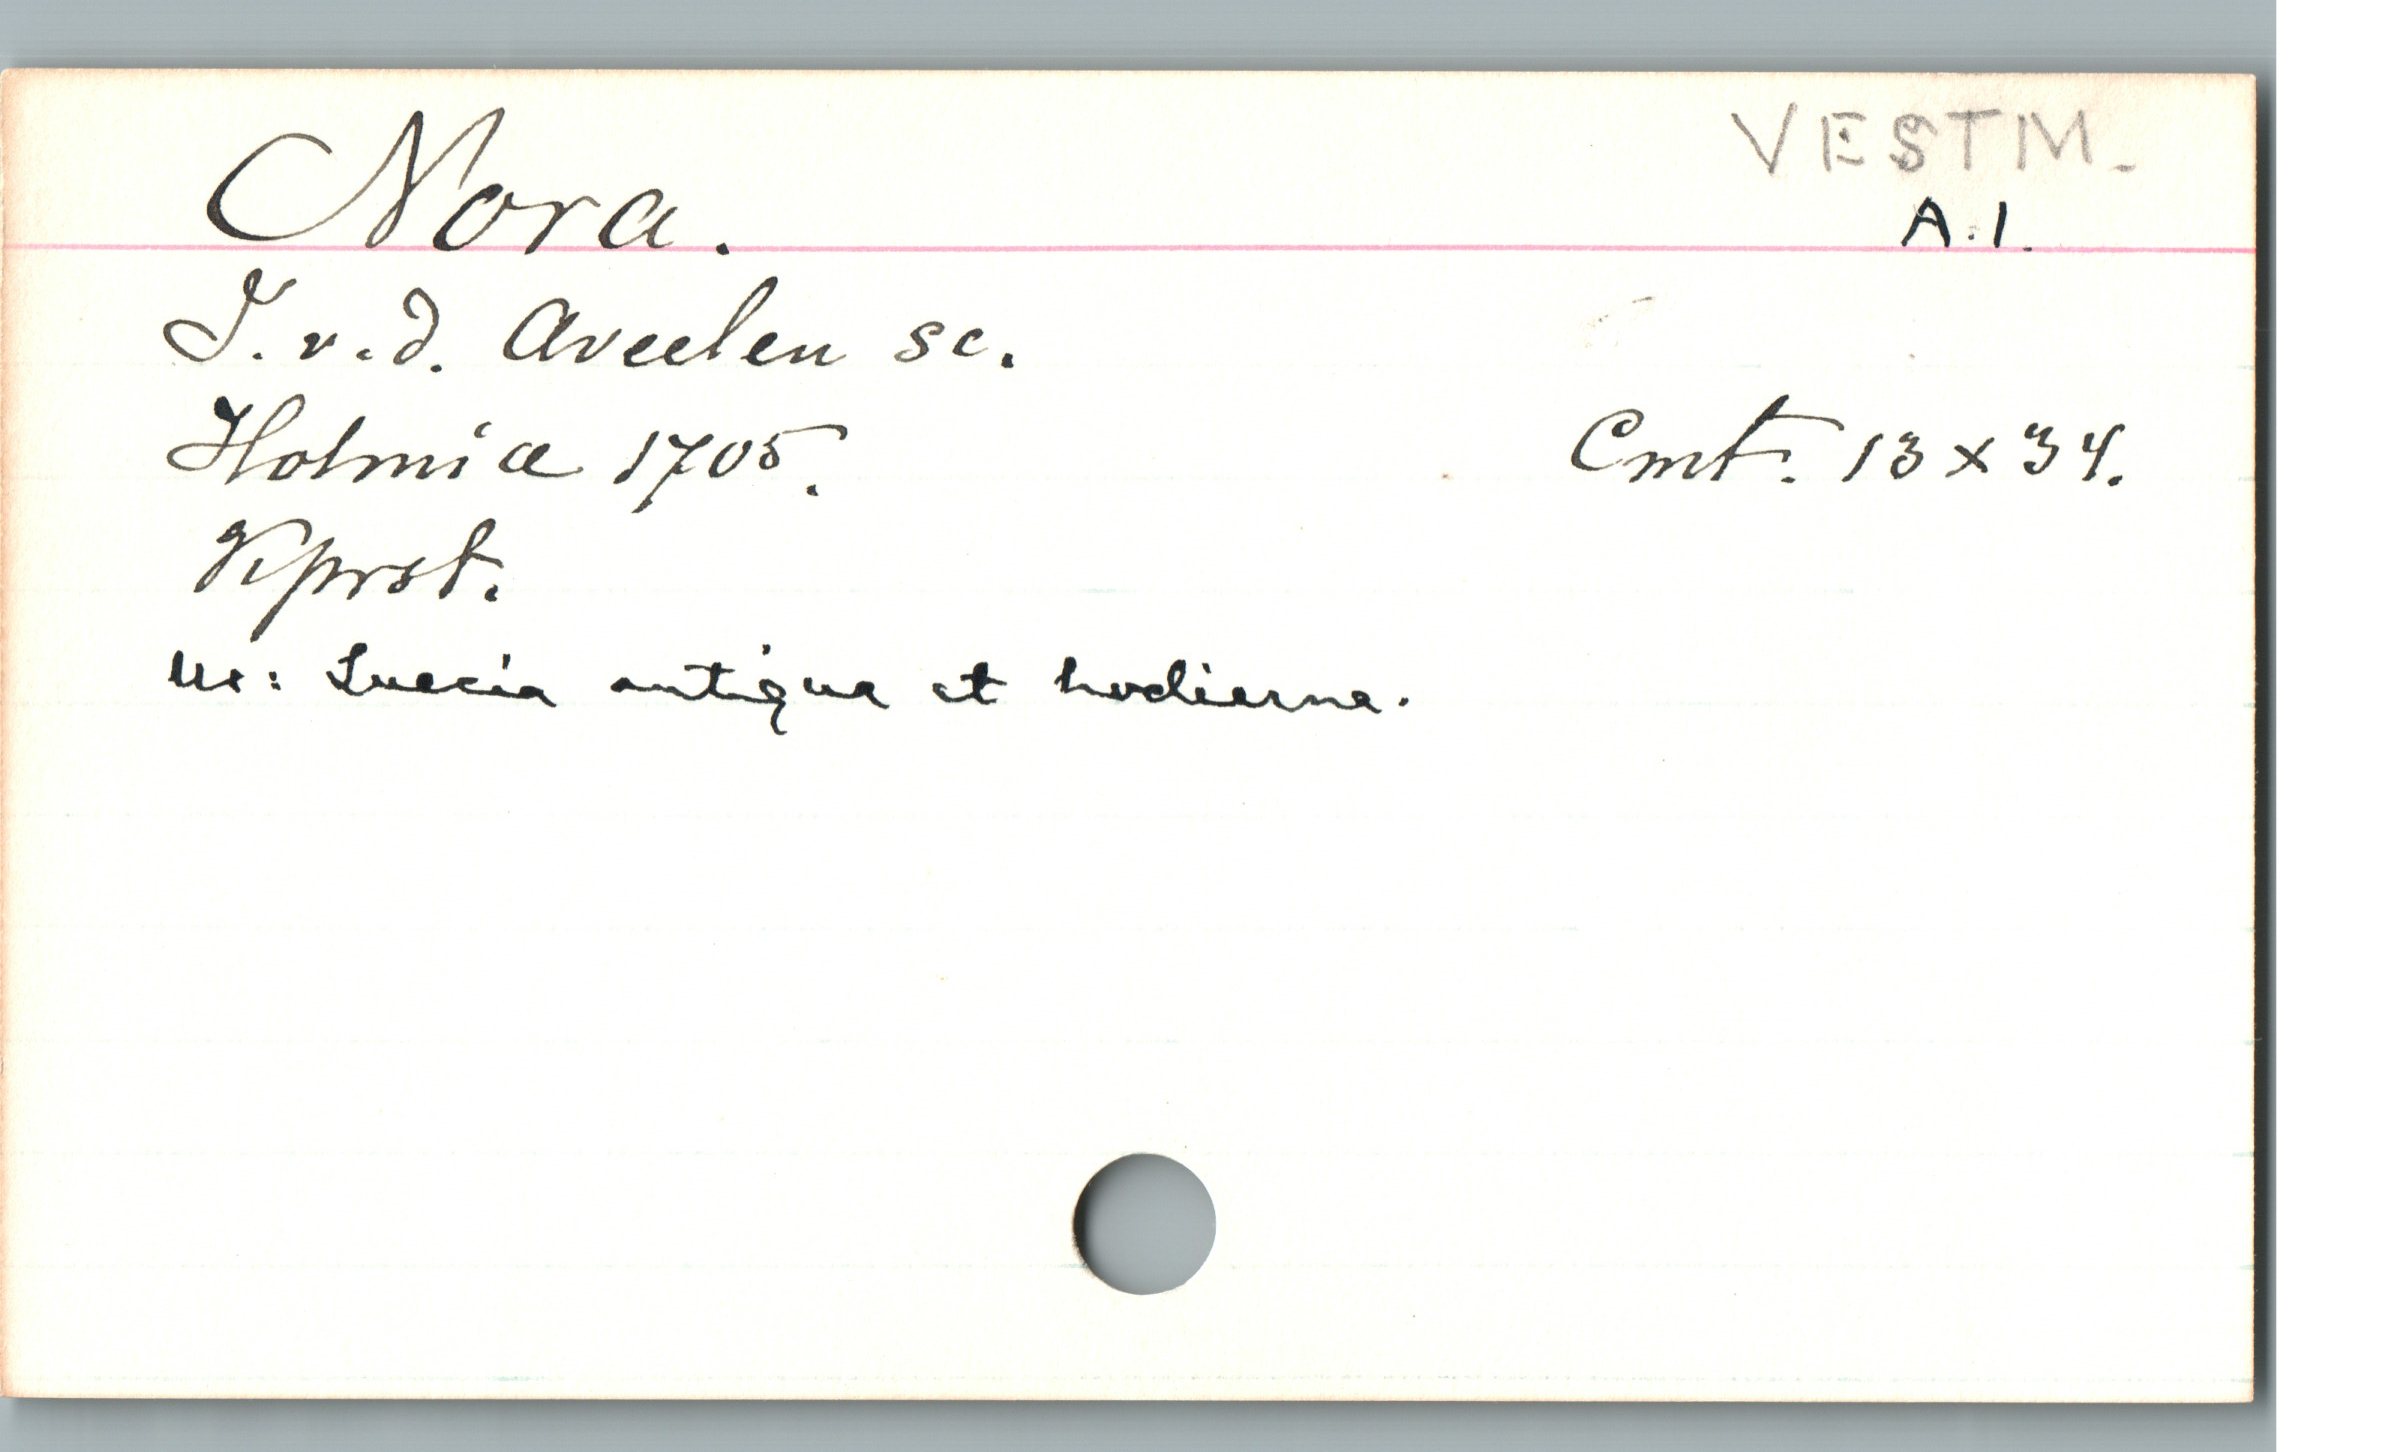 Nora.
VESTM.
A.1.
J.v.d. Aveelen sc.
Holmiæ 1705.
Cmt. 13 x 34.
Kprst.
Ur: Suecia antiqua et hodierna.